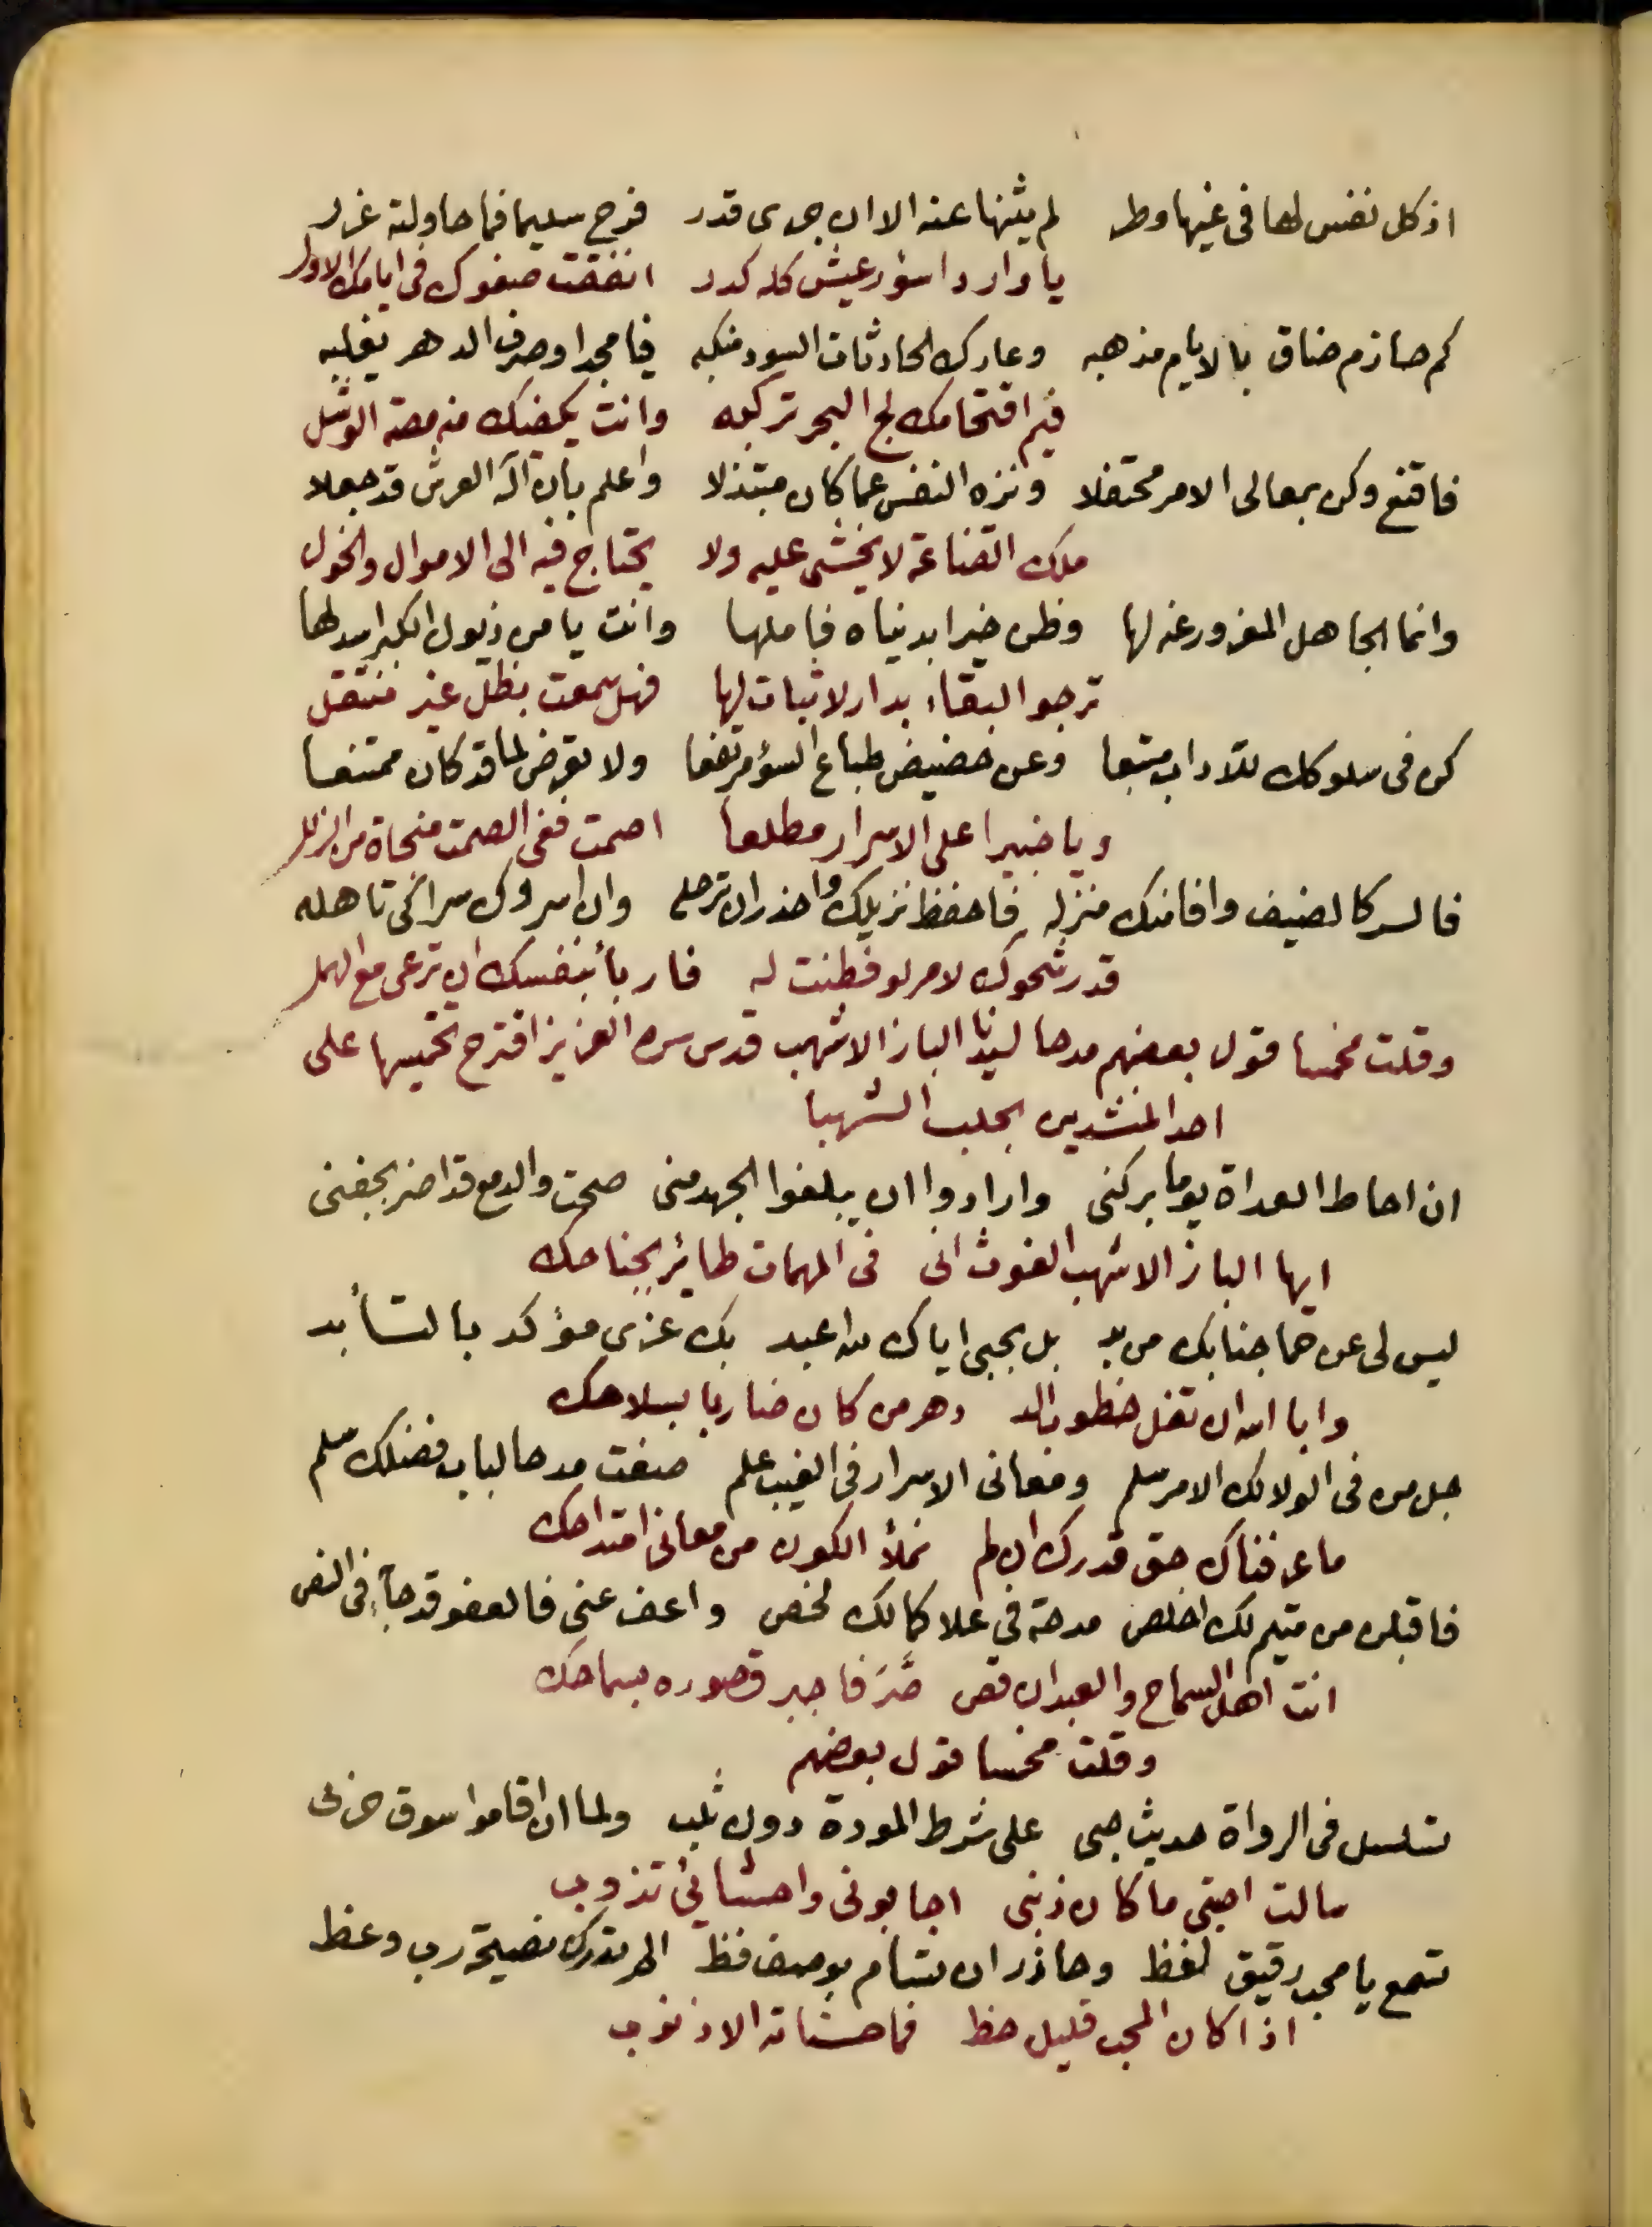 اذ كل نفس لها فى غيها وطر لم يثنها عنه الا ان جرى قدر فرح سليما فما حاولته غرر
يا واردا سؤر عيش كله كدر انفقت صفوك فى ايامك الاول
كم حازم ضاق بالايام مذهبه وعارك الحادثات السود منكبه فيا مجدا وصرف الدهر يغلبه
فيم اقتحامك لج البحر تركبه وانت يكفيك منه مصة الوشل
فاقنع وكن بمعالى الامر محتفلا ونزه النفس عما كان مبتذلا واعلم بان اله العرش قد جعلا
ملك القناعة لا يخشى عليه ولا يحتاج فيه الى الاموال والخول
وانما الجاهل المغرور غر لها وظن خيرا بدنياه فاملها وانت يا من ذيول الكبر اسدلها
ترجو البقاء بدار لا ثبات لها فهل سمعت بظل غير منتقل
كن فى سلوكك للآداب متبعا وعن حضيض طباع السؤ مرتفعا ولا تعرض لما قد كان ممتنعا
ويا خبيرا على الاسرار مطلعا اصمت ففى الصمت منجاة من الزلل
فالسر كالضيف وافا منك منزله فاحفظ نزيلك واحذر ان ترحله وان اسروك سرا كى تاهله
قد رشحوك لامر لو فطنت له فاربأ بنفسك ان ترعى مع الهمل
وقلت مخمسا قول بعضهم مدحا لسيدنا الباز الاشهب قدس سره العزيز اقترح تخميسها على
احد المنشدين بحلب الشهبا
ان احاط العداة يوما بركنى وارادوا ان يبلغوا الجهد منى صحت والدمع قد اضر بجفنى
ايها الباز الاشهب الغوث انى فى المهمات طائر بجناحك
ليس لى عن حما جنابك من بد بل بحبى اياك لله اعبد بك عزى مؤكد بالتأبد
وابا الله ان تفل خطوب الد دهر من كان ضاربا بسلاحك
جل من فى الولا لك الامر سلم ومعانى الاسرار فى الغيب علم صغت مدحا لباب فضلك سلم
ما عرفناك حق قدرك ان لم نملأ الكون من معانى امتداحك
فاقبلن من متيم لك اخلص مدحة فى علا كمالك لخص واعف عنى فالعفو قد جآء فى النص
انت اهل السماح والعبد ان قص صر فاجبر قصوره بسماحك
وقلت مخمسا قول بعضهم
تسلسل فى الرواة حديث حبى على شرط المودة دون ثلب ولما ان اقاموا سوق حربى
سالت احبتى ما كان ذنبى اجابونى واحشائى تذوب
تسمع يا محب رقيق لفظ وحاذر ان تسام بوصف فظ الم تدرك نصيحة رب وعظ
اذا كان المحب قليل حظ فما حسناته الا ذنوب